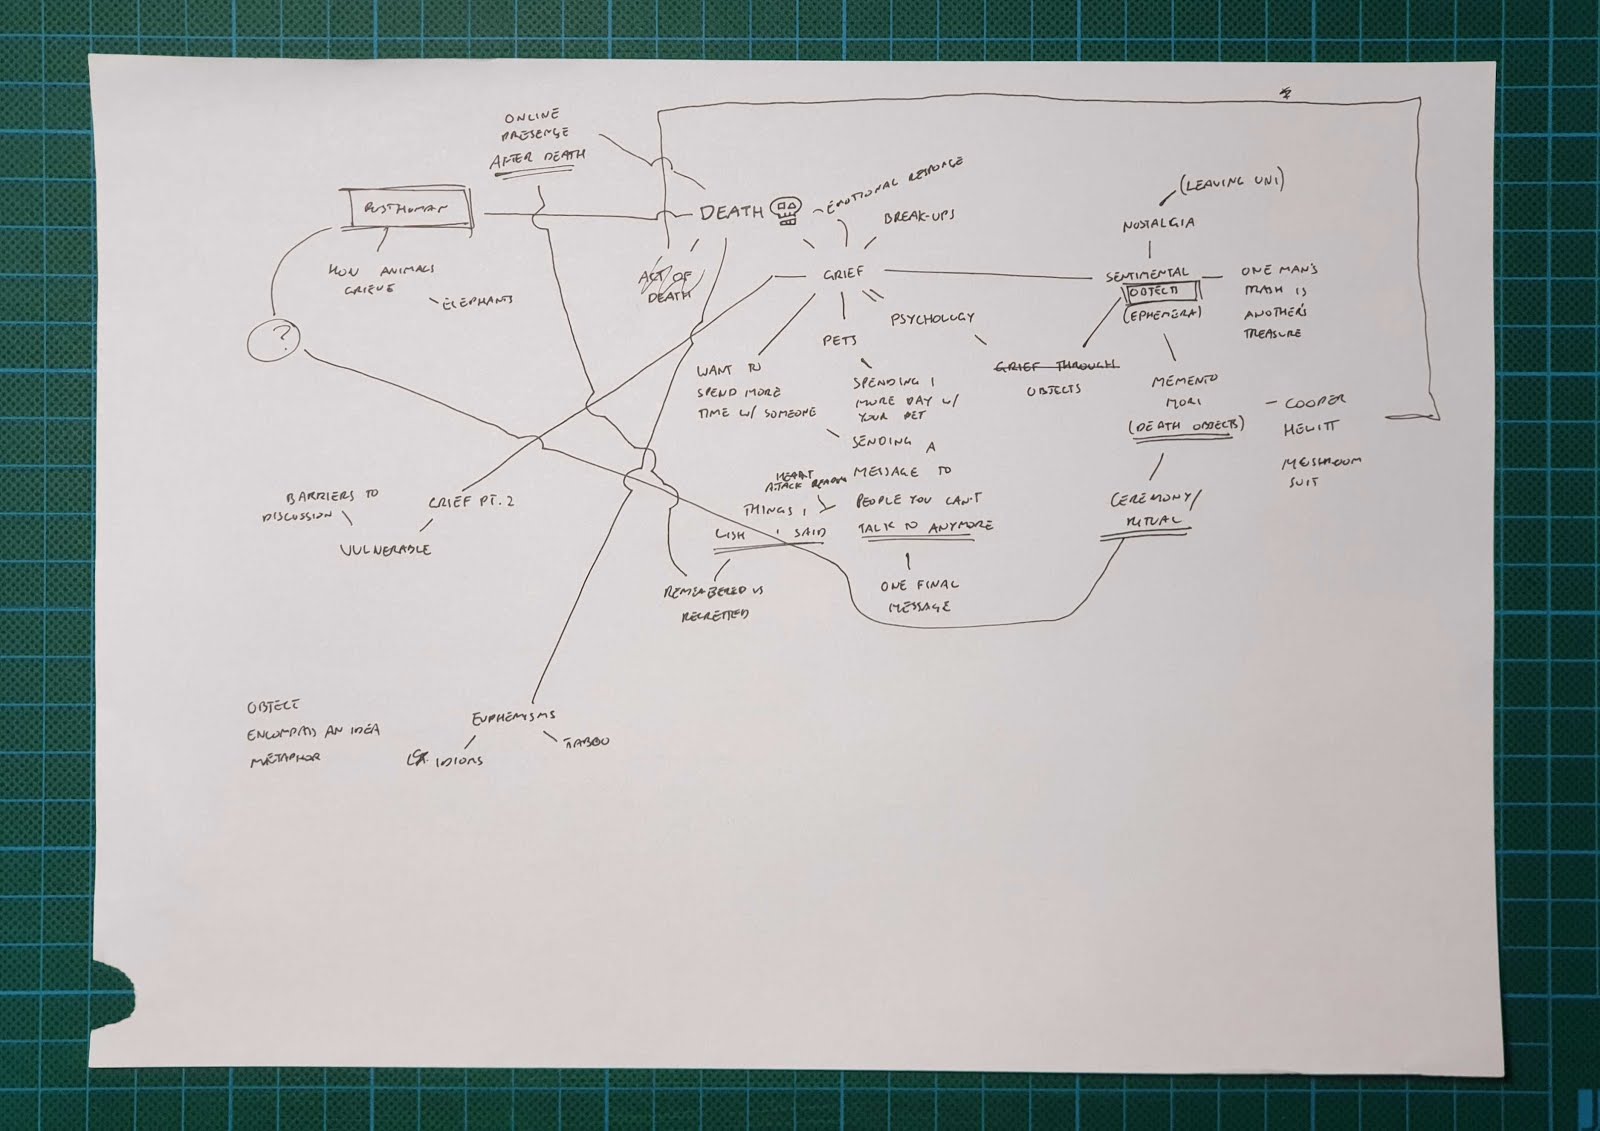 ONLINE
PRESENCE
AFTER DEATH
POSTHUMAN
HOW ANIMALS
GRIEVE
ELEPHANTS
?
DEATH
EMOTIONAL RESPONSE
BREAK-UPS
ACT OF
DEATH
GRIEF
PSYCHOLOGY
PETS
WANT TO
SPEND MORE
TIME W/ SOMEONE
SPENDING 1
MORE DAY W/
YOUR PET
SENDING A
MESSAGE TO
PEOPLE YOU CAN'T
TALK TO ANYMORE
ONE FINAL
MESSAGE
HEART
ATTACK
THINGS I
WISH I SAID
REMEMBERED VS
REGRETTED
GRIEF THROUGH
OBJECTS
(LEAVING UNI)
NOSTALGIA
SENTIMENTAL
OBJECTS
(EPHEMERA)
ONE MAN'S
TRASH IS
ANOTHER'S
TREASURE
MEMENTO
MORI
(DEATH OBJECTS)
- COOPER
HEWITT
MUSHROOM
SUIT
CEREMONY/
RITUAL
BARRIERS TO
DISCUSSION
GRIEF PT. 2
VULNERABLE
EUPHEMISMS
IDIOMS
TABOO
OBJECT
ENCOMPASS AN IDEA
METAPHOR